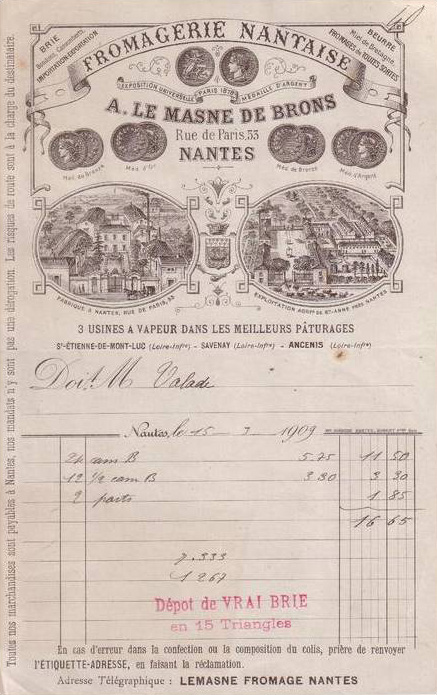 BRIE
Bondons, Camemberts
IMPORTATION-EXPORTATION
FROMAGERIE NANTAISE
BEURRE
Miel de Bretagne,
FROMAGES DE TOUTES SORTES
EXPOSITION UNIVERSELLE PARIS 1878 MÉDAILLE D'ARGENT
A. LE MASNE DE BRONS
Rue de Paris, 53
NANTES
Méd. de Bronze
Méd. d'Or
Méd. de Bronze
Méd. d'Argent
FABRIQUE À NANTES, RUE DE PARIS, 53
EXPLOITATION AGRIC. DE STE-ANNE PRÈS NANTES
3 USINES A VAPEUR DANS LES MEILLEURS PÂTURAGES
ST-ÉTIENNE-DE-MONT-LUC (Loire-Infre) - SAVENAY (Loire-Infre) - ANCENIS (Loire-Infre)
Doit M Valade
Nantes, le 15 3 1909
24 cam B 5.75 11 50
12 1/2 cam B 3 30 3 30
2 ports 1 85
16 65
7.333
1 267
Dépot de VRAI BRIE
en 15 Triangles
En cas d'erreur dans la confection ou la composition du colis, prière de renvoyer
l'ÉTIQUETTE-ADRESSE, en faisant la réclamation.
Adresse Télégraphique : LEMASNE FROMAGE NANTES
Toutes nos marchandises sont payables à Nantes, nos mandats n'y sont pas une dérogation. Les risques de route sont à la charge du destinataire.